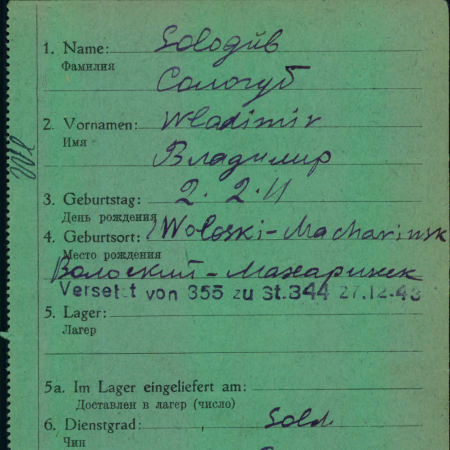 1. Name: Sologub
Фамилия
Сологуб
2. Vornamen: Wladimir
Имя
Владимир
3. Geburtstag: 2. 2. 11
День рождения
4. Geburtsort: Woloski-Macharinsk
Место рождения
Волоский-Махаринск
Versetzt von 355 zu St.344 27.12.43
5. Lager:
Лагерь
5a. Im Lager eingeliefert am:
Доставлен в лагерь (число)
6. Dienstgrad: Sold.
Чин